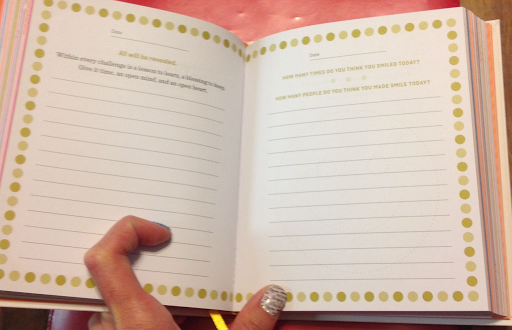 Date
All will be revealed.
Within every challenge is a lesson to learn, a blessing to keep.
Give it time, an open mind, and an open heart.
Date
HOW MANY TIMES DO YOU THINK YOU SMILED TODAY?
HOW MANY PEOPLE DO YOU THINK YOU MADE SMILE TODAY?